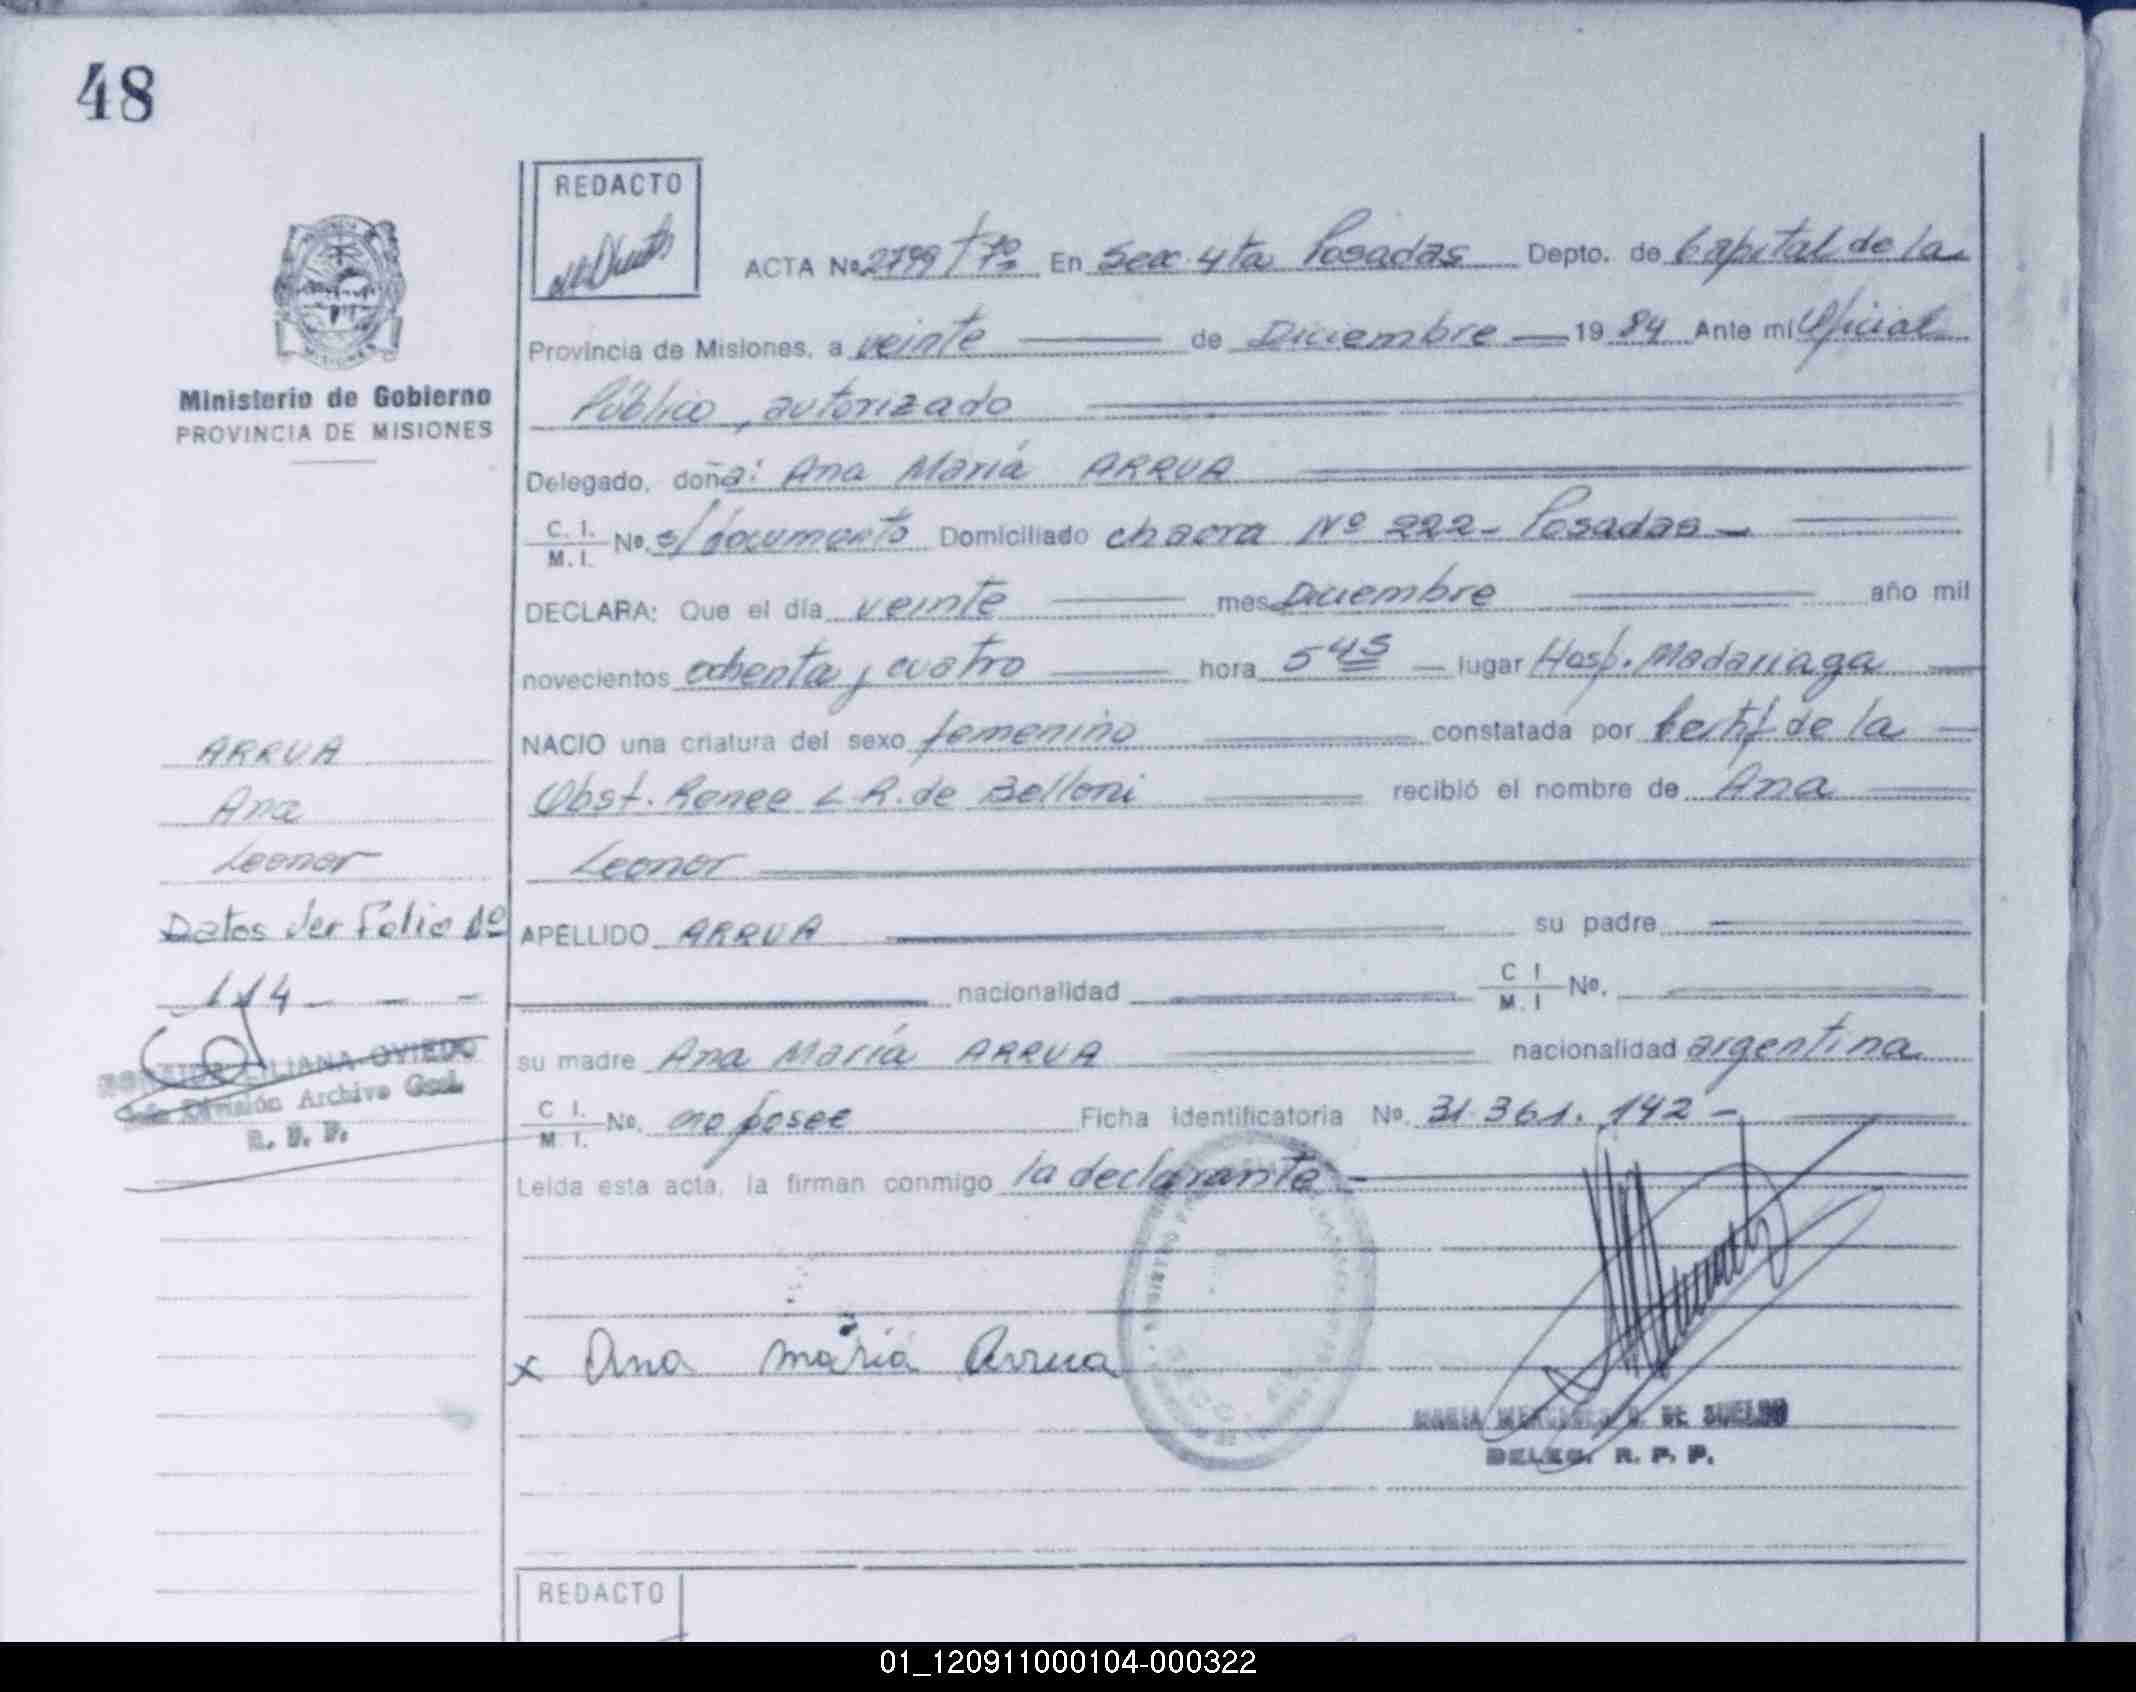 48
REDACTO
ACTA No 2799 Tº 7º En Secc. 4ta Posadas Depto. de Capital de la
Provincia de Misiones, a veinte de Diciembre 1984 Ante mi Oficial
Público, autorizado
Ministerio de Gobierno
PROVINCIA DE MISIONES
Delegado, doña: Ana María ARRUA
C. I.
M. I. No. s/documento Domiciliado chacra Nº 222 - Posadas -
DECLARA: Que el día veinte mes Diciembre año mil
novecientos ochenta y cuatro hora 5 45 lugar Hosp. Madariaga
NACIO una criatura del sexo femenino constatada por Certif de la
Obst. Renee L R. de Belloni recibió el nombre de Ana
Leonor
ARRUA
Ana
Leonor
Datos Ver Folio Nº
114
APELLIDO ARRUA su padre
nacionalidad C I
M. I No.
su madre Ana María ARRUA nacionalidad argentina
C I.
M. I. No. no posee Ficha identificatoria No. 31.361.142 -
LILIANA OVIEDO
Jefe División Archivo Gral.
R. P. P.
Leída esta acta, la firman conmigo la declarante -
x Ana maria Arrua
MARIA MERCEDES DE SUELDO
DELEG. R. P. P.
REDACTO
01_120911000104-000322